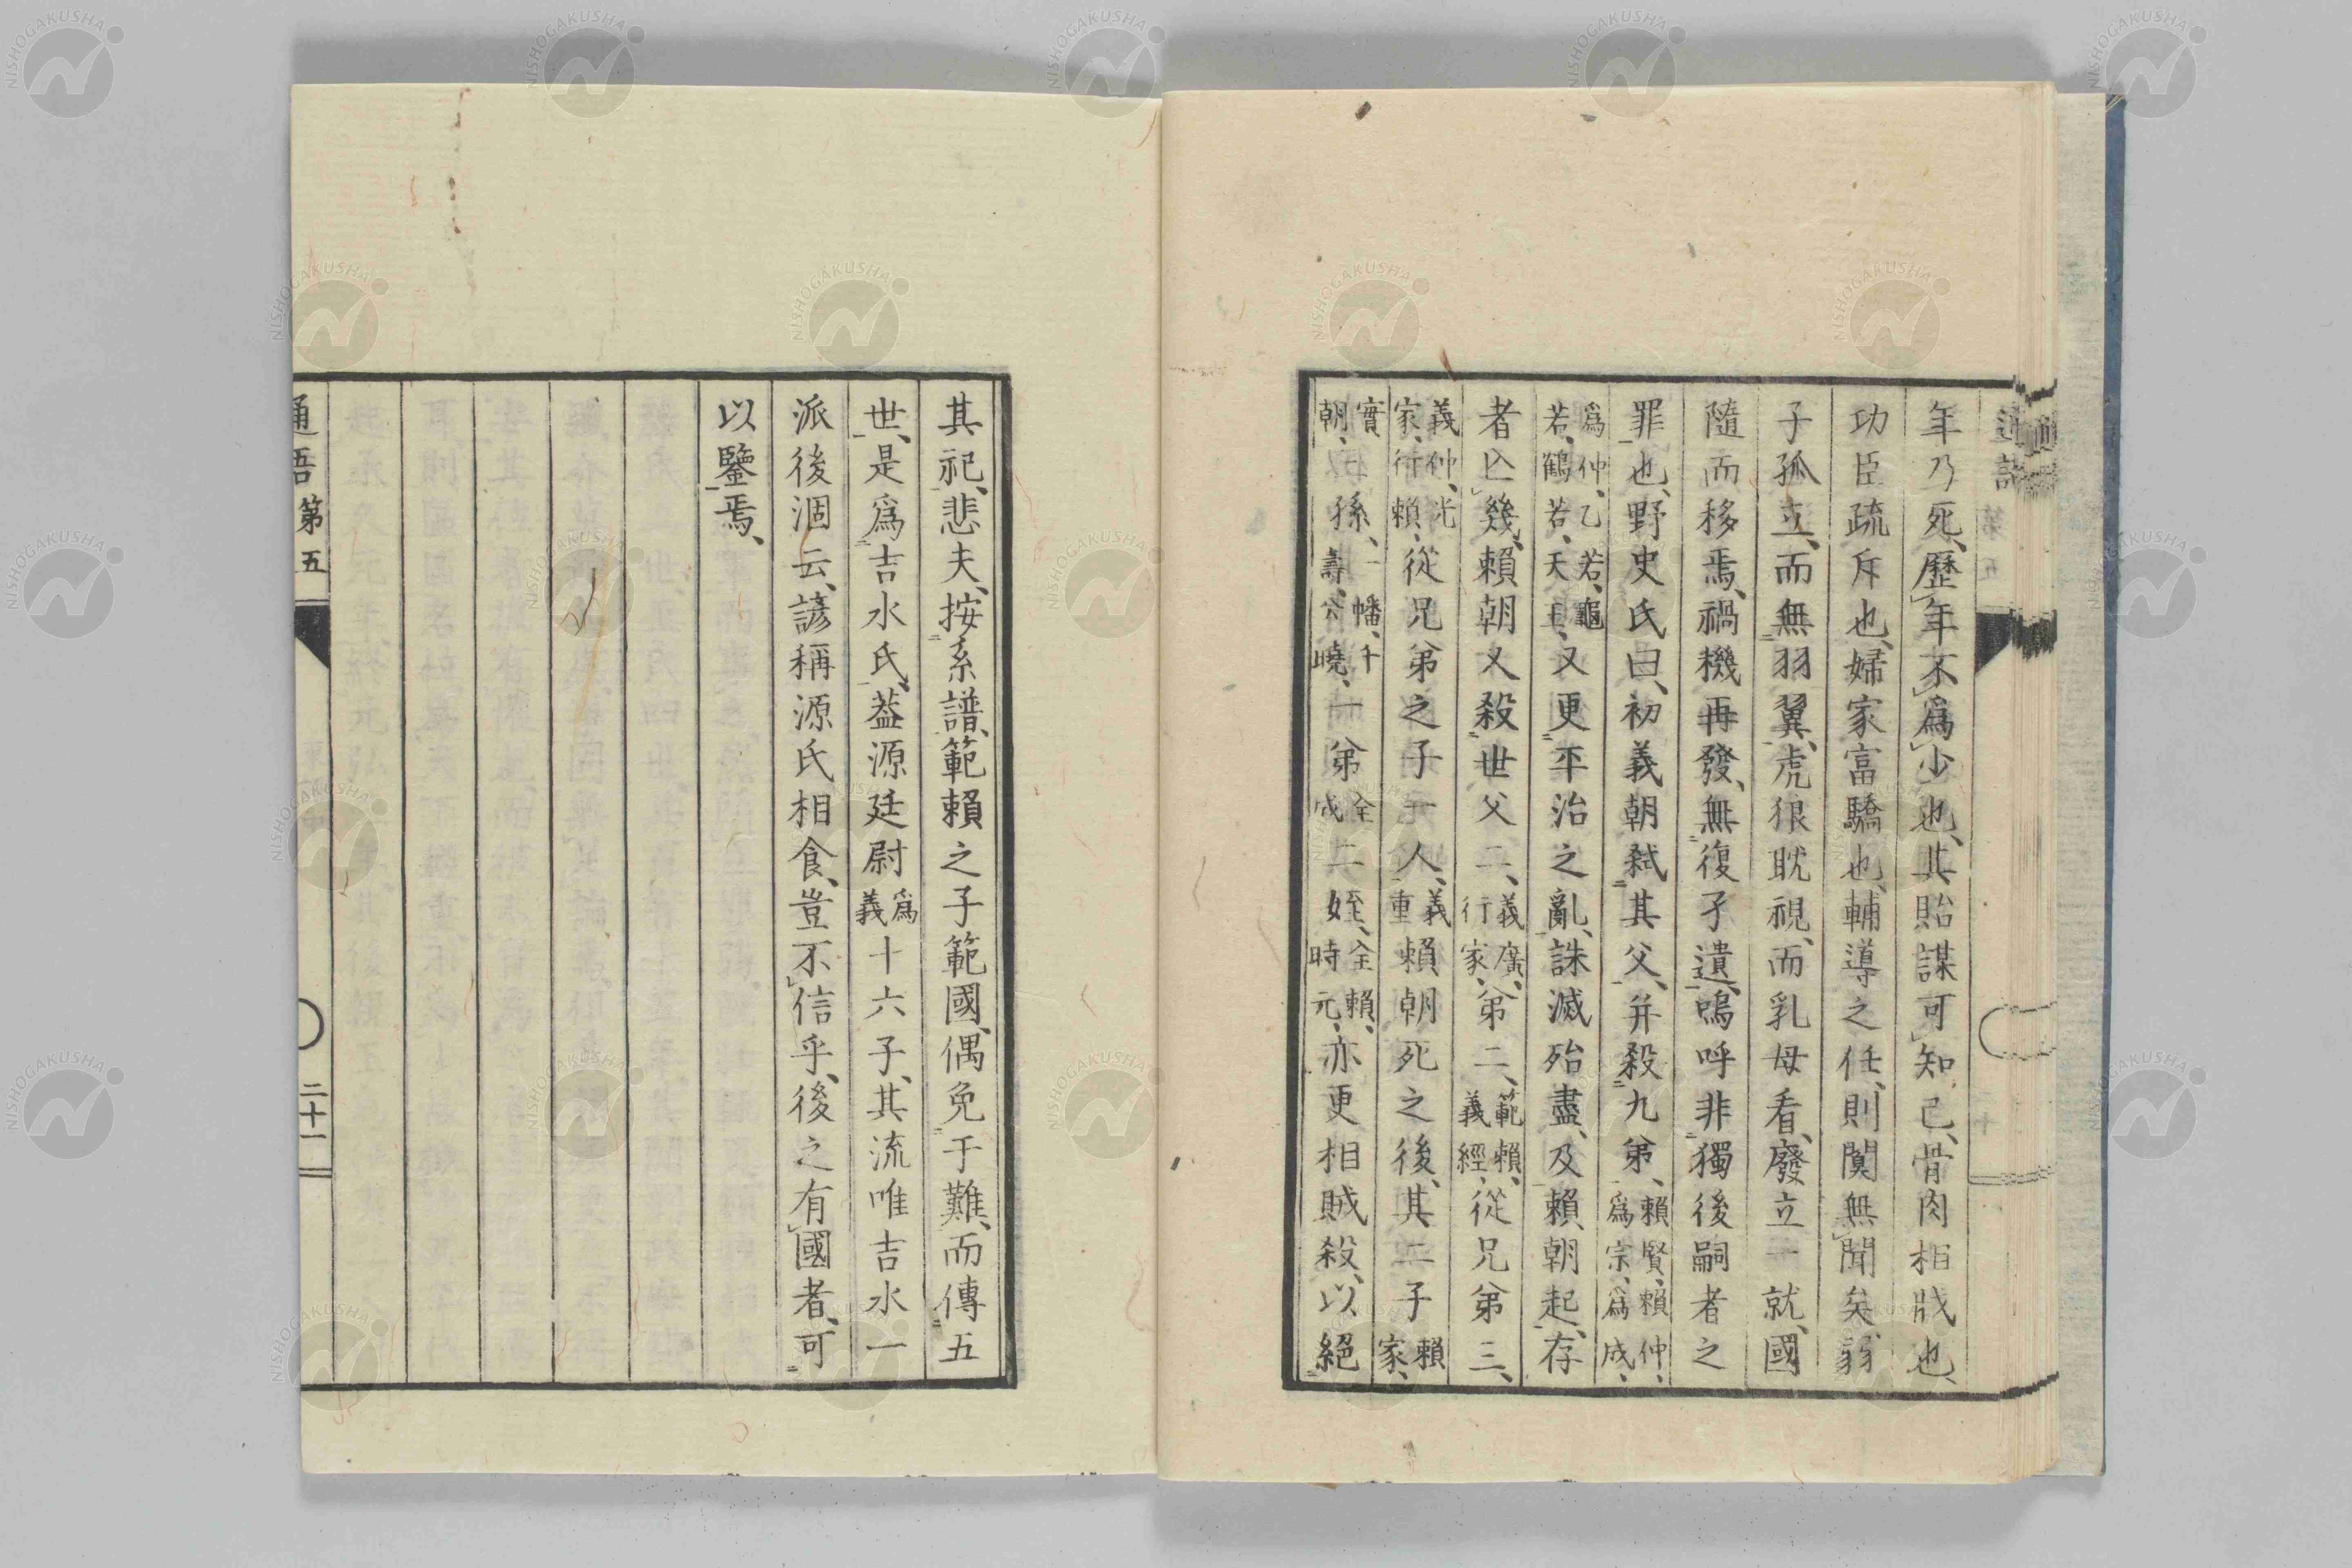 年乃死、歷年不爲少也、其貽謀可知已、骨肉相戕也、
功臣疏斥也、婦家富驕也、輔導之任、則闃無聞矣、弱
子孤立、而無羽翼、虎狼耽視、而乳母看、廢立一就、國
隨而移焉、禍機再發、無復孑遺、嗚呼非獨後嗣者之
罪也、野史氏曰、初義朝弑其父、并殺九弟、賴賢、賴仲、爲宗、爲成、
爲仲、乙若、龜若、鶴若、天王、又更平治之亂、誅滅殆盡、及賴朝起、存
者亡幾、賴朝又殺世父二、義廣、行家、弟二、範賴、義經、從兄弟三、
義仲、光家、行賴、從兄弟之子一人、義重賴朝死之後、其二子賴家、
實朝、孫、一幡、千壽、公曉、一弟全成二姪、全賴、時元、亦更相賊殺、以絕
其祀、悲夫、按系譜、範賴之子範國、偶免于難、而傳五
世、是爲吉水氏、蓋源廷尉爲義十六子、其流唯吉水一
派後涸云、諺稱源氏相食、豈不信乎、後之有國者、可
以鑒焉、
通語 第五
二十一
NISHOGAKUSHA